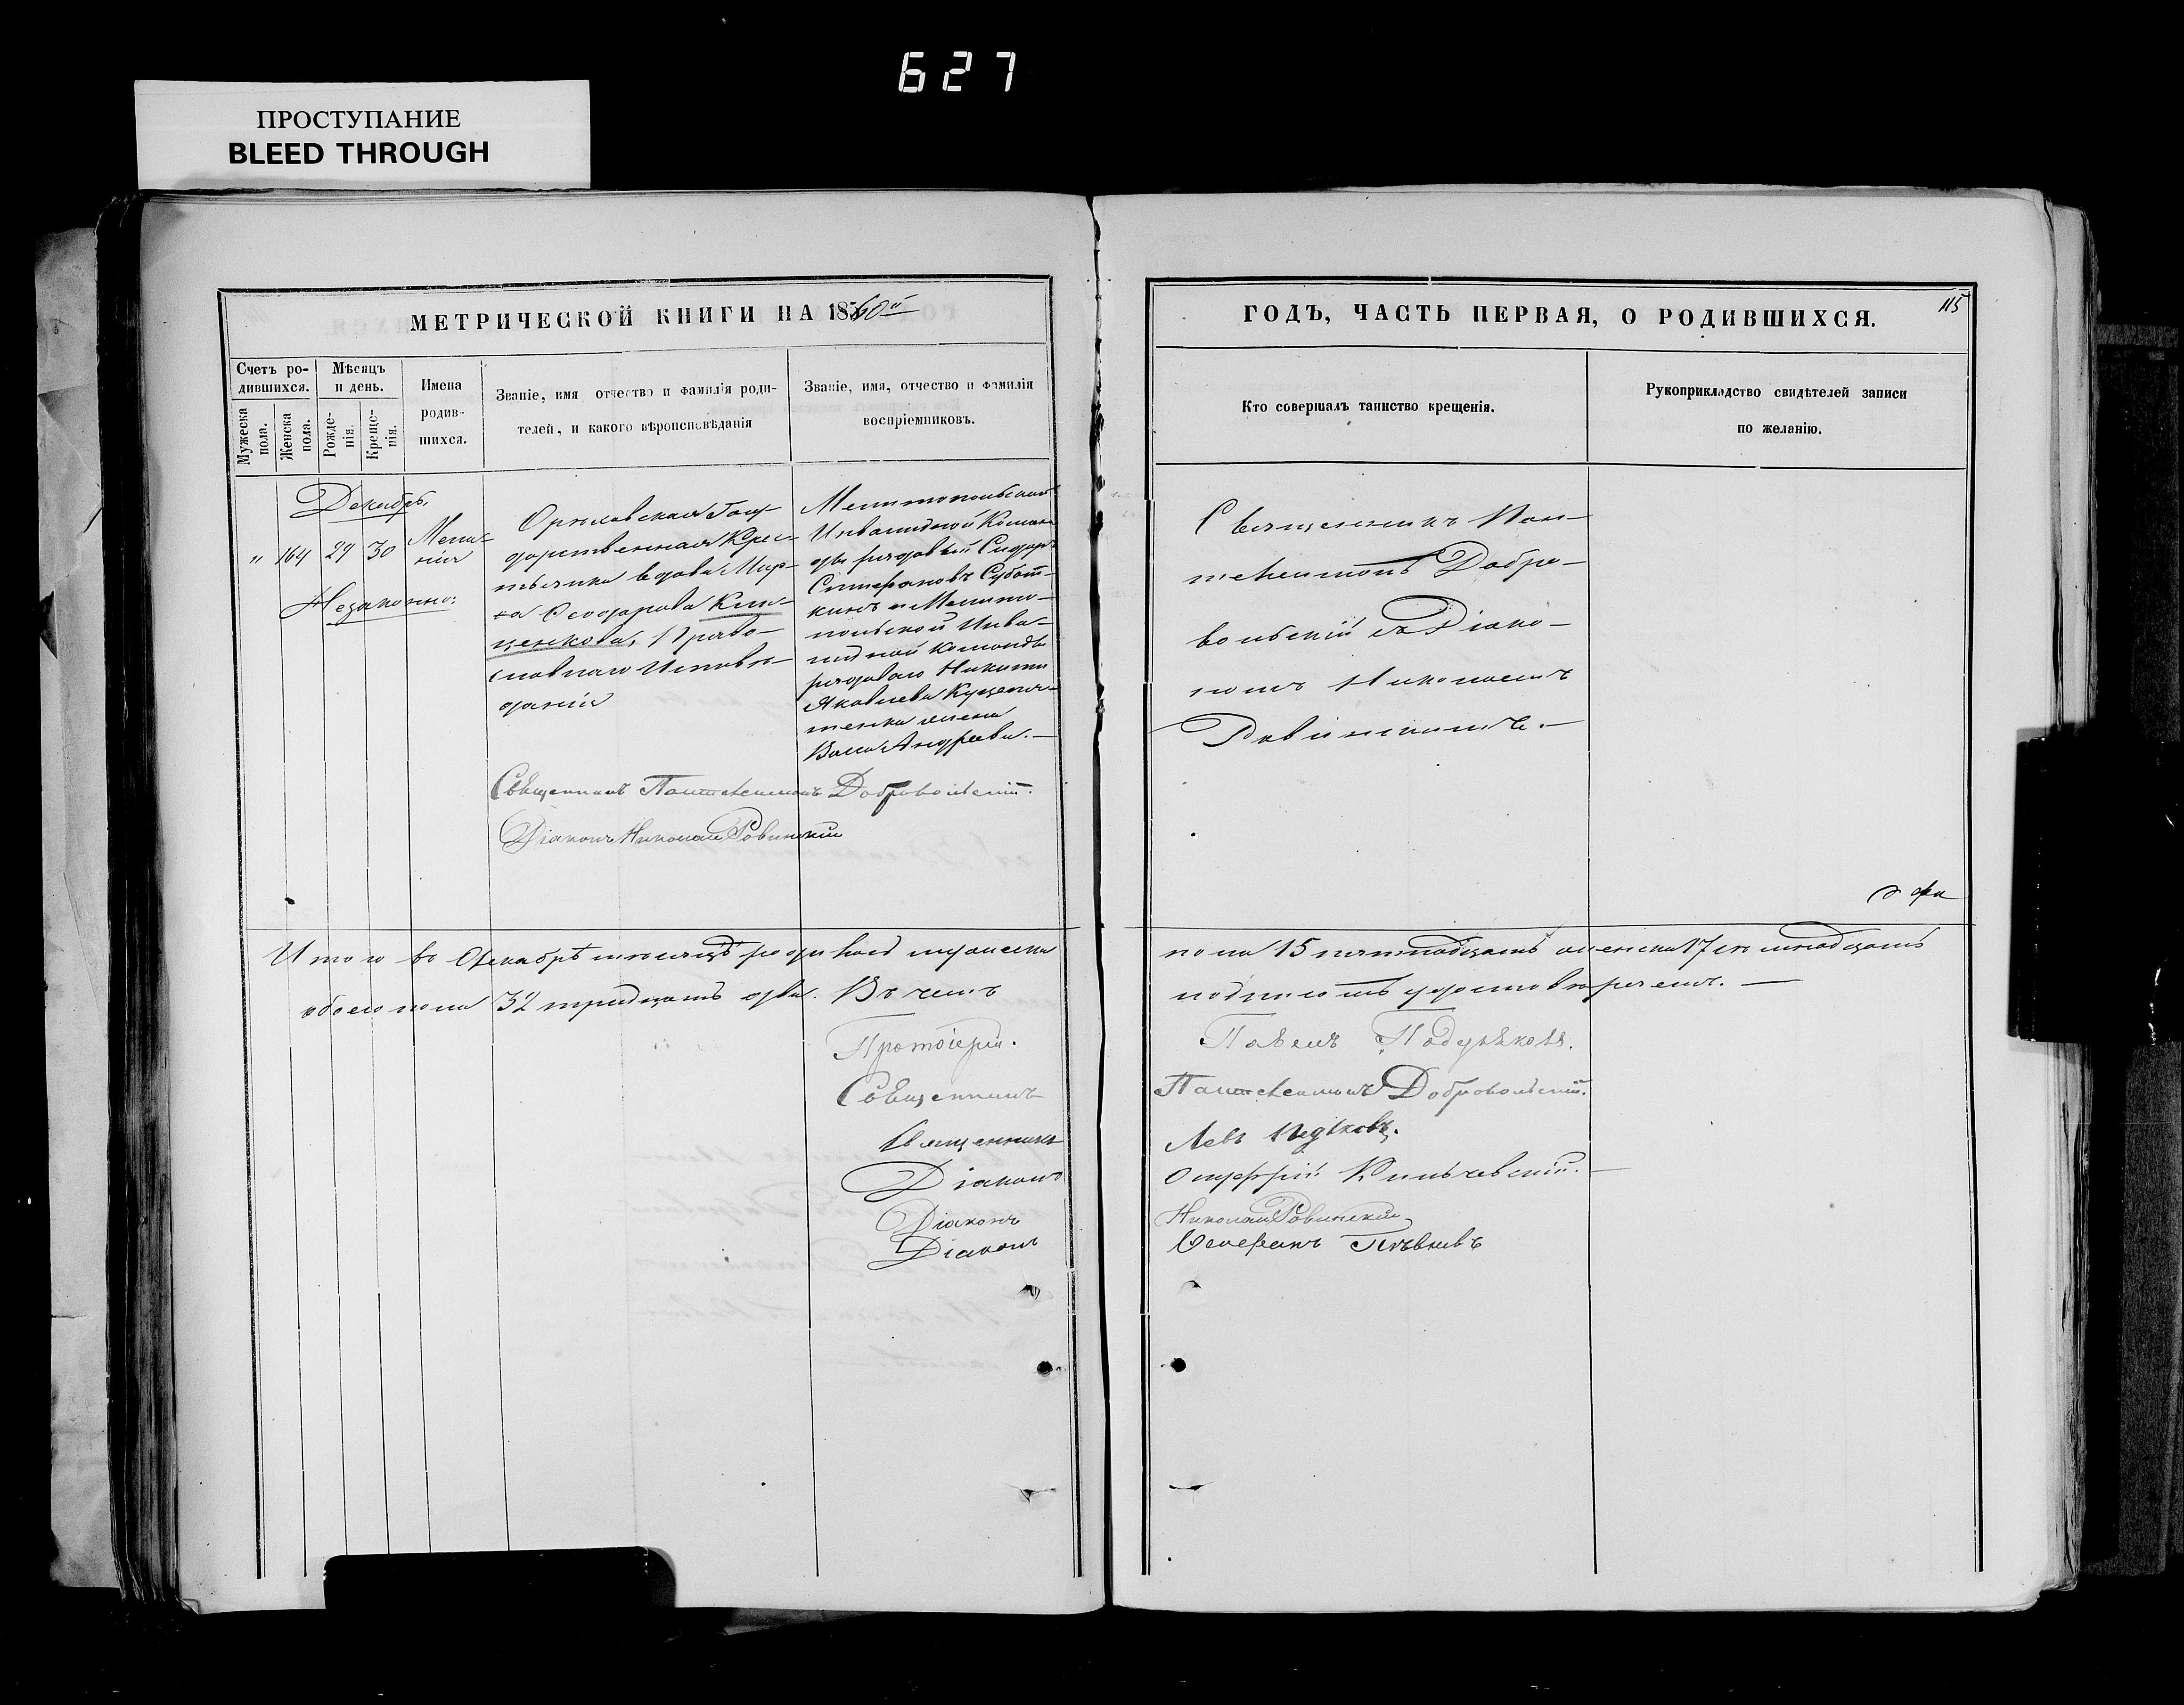 627
ПРОСТУПАНИЕ
BLEED THROUGH
МЕТРИЧЕСКОЙ КНИГИ НА 1860й
Счетъ родившихся.
Мужеска пола.
Женска пола.
Мѣсяцъ и день.
Рожденія.
Крещенія.
Имена родившихся.
Званіе, имя отчество и фамилія родителей, и какого вѣроисповѣданія
Званіе, имя, отчество и фамилія воспріемниковъ.
Декабрь.
" 164 29 30
Мела-
нія
Незаконно:
Орѣховская Госу-
дарственная Крес-
тьянка вдова Мар-
ѳа Ѳеодорова
ценкова, Право-
славнаго Исповѣ-
данія
Мелитопольской
Инвалидной Коман-
ды рядовый Сидоръ
Стефановъ Субот-
кинъ и Мелито-
польской Инва-
лидной команды
рядоваго Никиты
Яковлева
жена
Васса Андреева.
Священникъ Пантелеимонъ Добровольскій.
Діаконъ Николай Ровинскій
Итого въ Декабрѣ мѣсяцѣ родилось мужеска
обоего пола 32 тридцать два. Въ чемъ
Протоіерей.
Священникъ
Священникъ
Діаконъ
Діаконъ
Діаконъ
ГОДЪ, ЧАСТЬ ПЕРВАЯ, О РОДИВШИХСЯ.
115
Кто совершалъ таинство крещенія.
Рукоприкладство свидѣтелей записи по желанію.
Священникъ Пан-
телеимонъ Добро-
вольскій съ Діако-
номъ Николаемъ
Ровинскимъ.
пола 15 пятнадцать женска 17 семнадцать
подписомъ удостовѣряемъ.
Павелъ
Пантелеимонъ Добровольскій.
Левъ
Николай Ровинскій